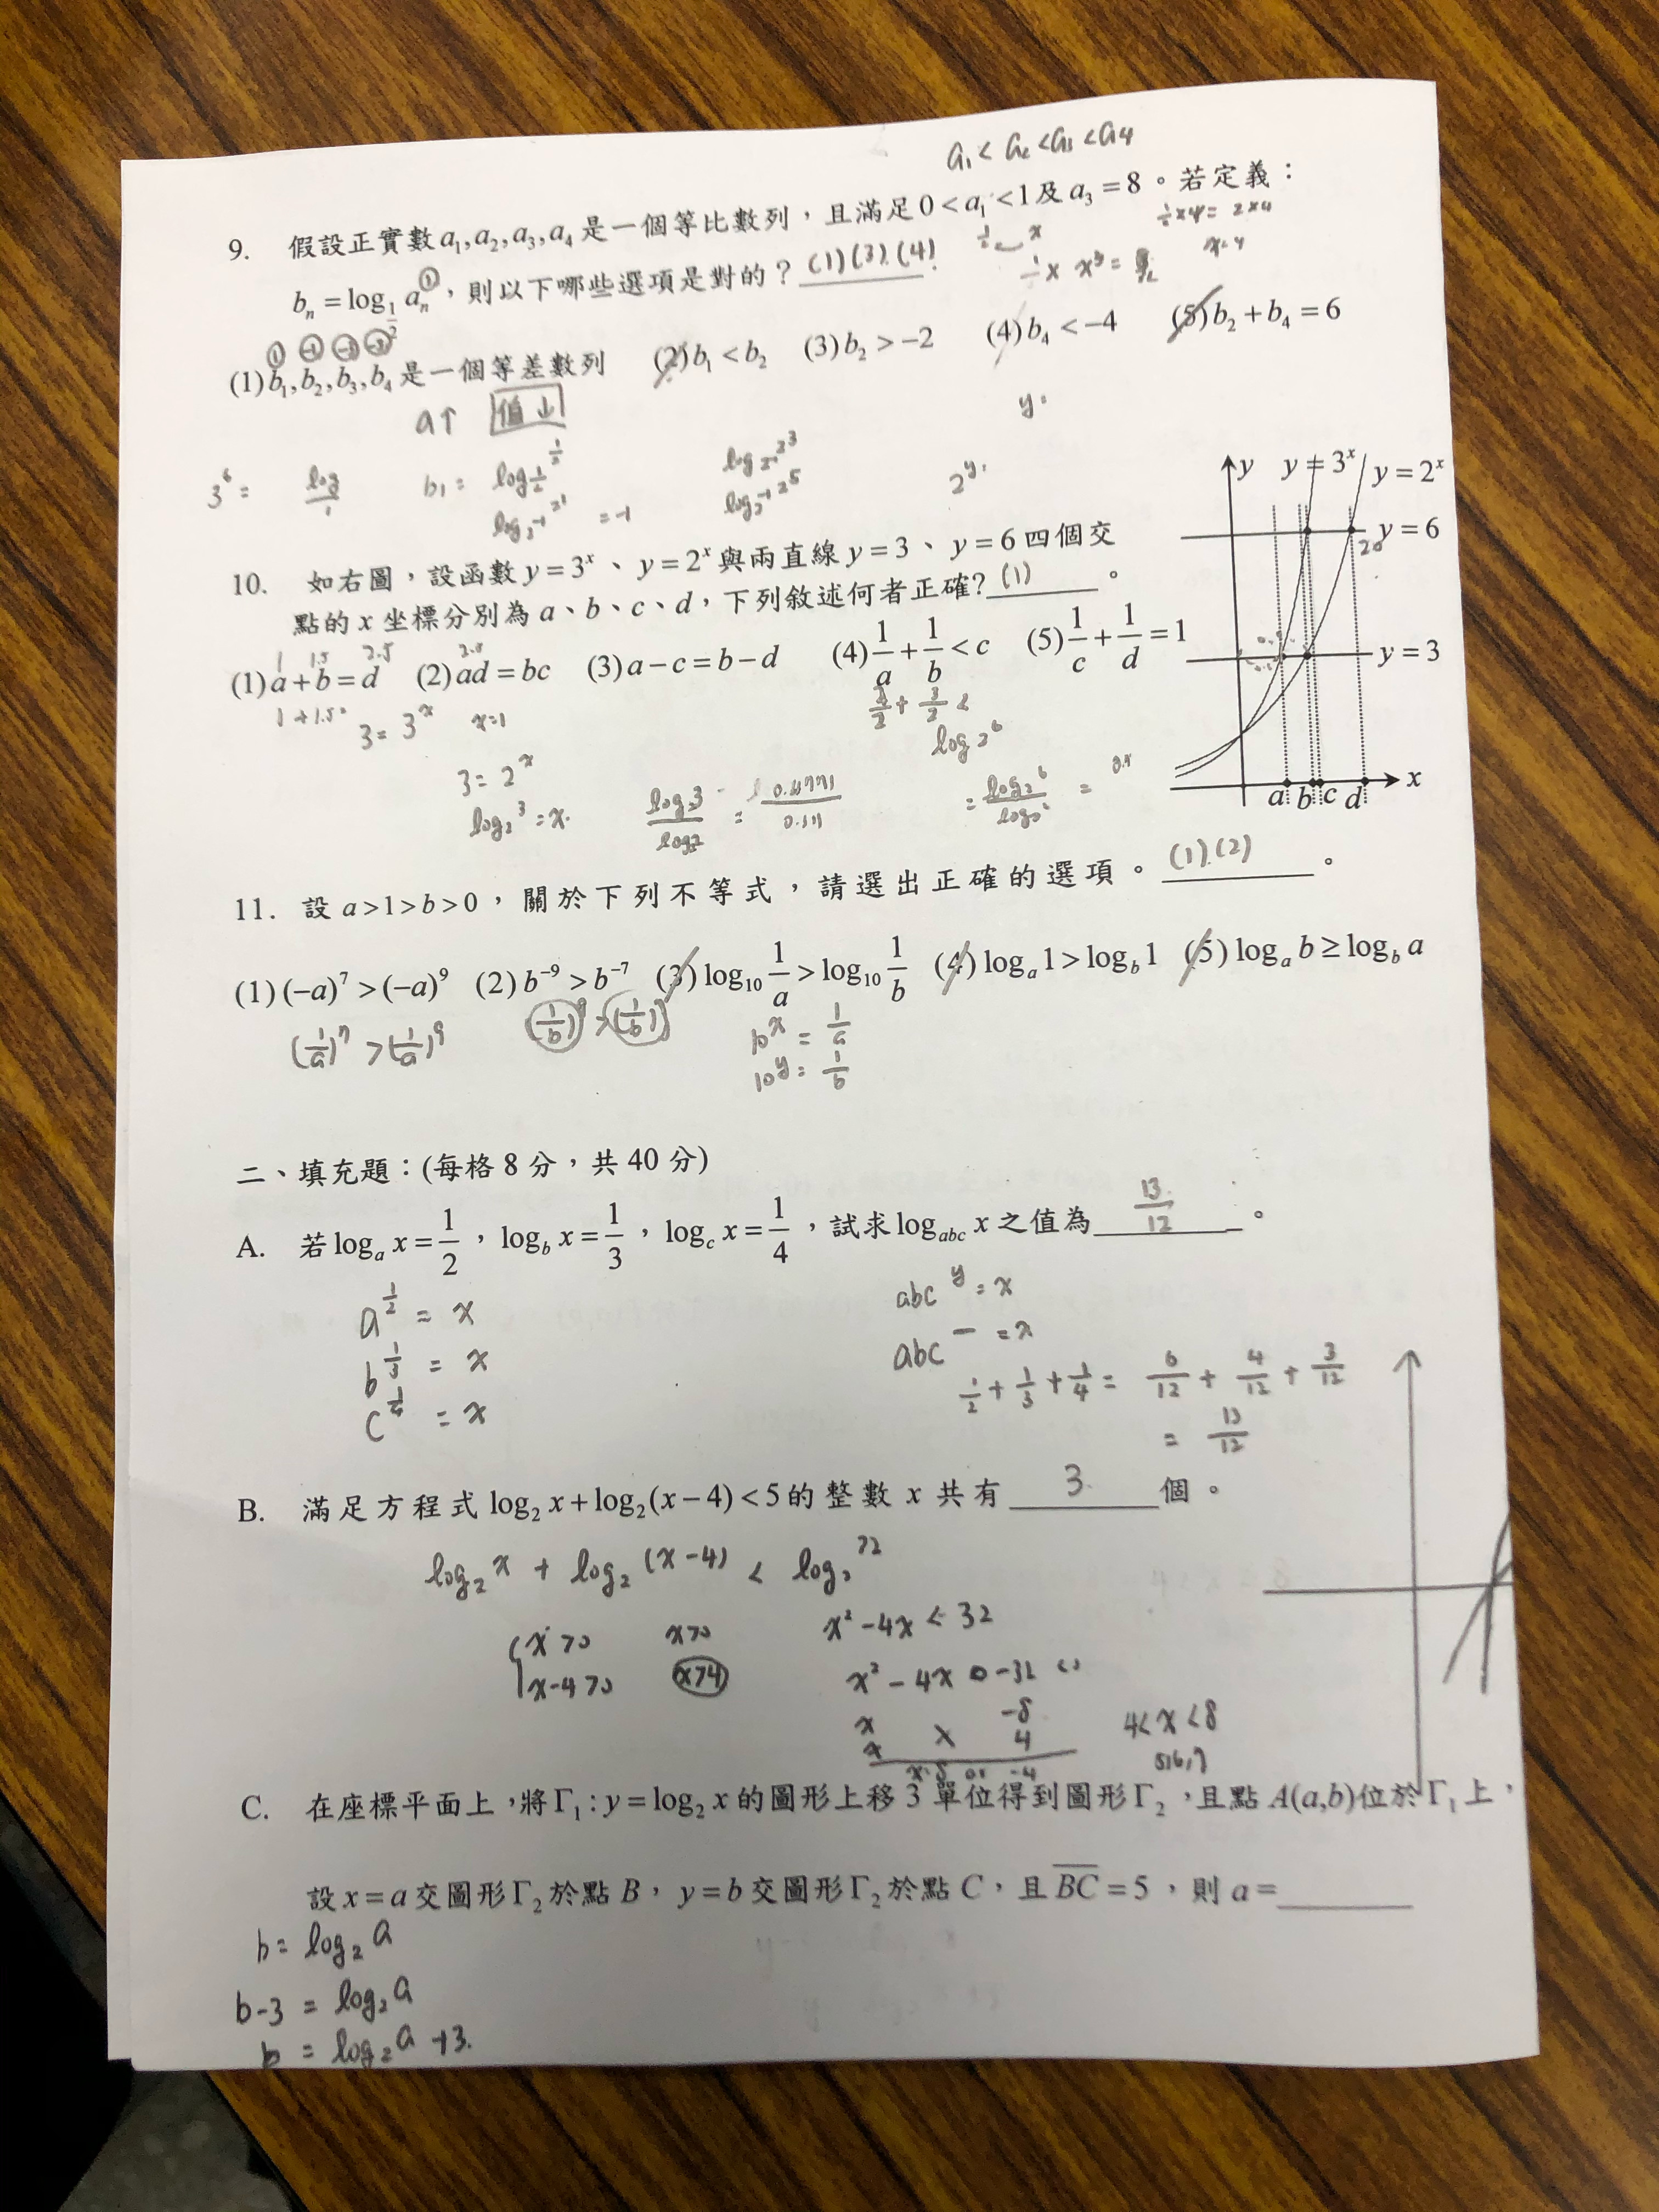 a₁ < a₂ < a₃ < a4
9. 假設正實數 a₁, a₂, a₃, a₄ 是一個等比數列，且滿足 0 < a₁ < 1 及 a₃ = 8。若定義：
½×4 = 2×4
x=4
bₙ = log_{1/2} aₙ，則以下哪些選項是對的？(1)(3)(4)
(1) b₁, b₂, b₃, b₄ 是一個等差數列 (2) b₁ < b₂ (3) b₂ > −2 (4) b₄ < −4 (5) b₂ + b₄ = 6
a↑ 值↓
y=
3⁶ =
b₁ =
= -1
y = 3ˣ y = 2ˣ
y
y = 6
10. 如右圖，設函數 y = 3ˣ、y = 2ˣ 與兩直線 y = 3、y = 6 四個交
點的 x 坐標分別為 a、b、c、d，下列敘述何者正確? (1) 。
1 1.5 2.5
(1) a + b = d (2) ad = bc (3) a − c = b − d (4) 1/a + 1/b < c (5) 1/c + 1/d = 1
y = 3
3 = 3ˣ x=1
log 2⁶
3 = 2ˣ
log₂3 = x
a b c d x
11. 設 a > 1 > b > 0，關於下列不等式，請選出正確的選項。(1).(2) 。
(1) (−a)⁷ > (−a)⁹ (2) b⁻⁹ > b⁻⁷ (3) log₁₀ 1/a > log₁₀ 1/b (4) logₐ 1 > log_b 1 (5) logₐ b ≥ log_b a
(1/a)⁷ > (1/a)⁹ (1/b)⁹ > (1/b)⁷
10ˣ = 1/a
10ʸ = 1/b
二、填充題：(每格 8 分，共 40 分)
A. 若 logₐ x = 1/2，log_b x = 1/3，log_c x = 1/4，試求 log_{abc} x 之值為 13/12 。
a^{1/2} = x
b^{1/3} = x
c^{1/4} = x
abc ʸ = x
abc ⁻ = x
1/2 + 1/3 + 1/4 = 6/12 + 4/12 + 3/12
= 13/12
B. 滿足方程式 log₂ x + log₂(x − 4) < 5 的整數 x 共有 3 個。
log₂ x + log₂ (x-4) < log₂ 32
x>0 x>0 x² -4x < 32
x-4>0 x>4 x² -4x -32 <0
x -8
x 4
4<x<8
5,6,7
C. 在座標平面上，將 Γ₁: y = log₂ x 的圖形上移 3 單位得到圖形 Γ₂，且點 A(a,b) 位於 Γ₁ 上，
設 x = a 交圖形 Γ₂ 於點 B，y = b 交圖形 Γ₂ 於點 C，且 B̅C̅ = 5，則 a =
b = log₂ a
b-3 = log₂ a
b = log₂ a +3.